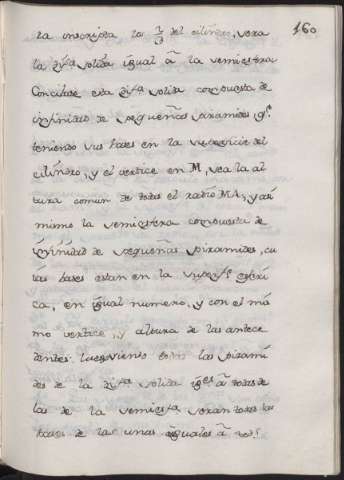 160
la inscripta los 2/3 del cilindro, sera
la fig.ª solida igual à la semiesfera
Concibase esta fig.ª solida compuesta de
infinitas de pequeñas piramides, q.e
teniendo sus bases en la superficie del
cilindro, y el vertice en M, sea la al
tura comun de todas el radio MA, y asi
mismo la semiesfera compuesta de
infinidad de pequeñas piramides, cu
ias bases estan en la superf.e esferi
ca, en igual numero, y con el mis
mo vertice, y altura de las antece
dentes. luego siendo todas las pirami
des de la fig.ª solida ig.es à todas de
las de la semiesf.ª seran todas las
bases de las unas iguales à